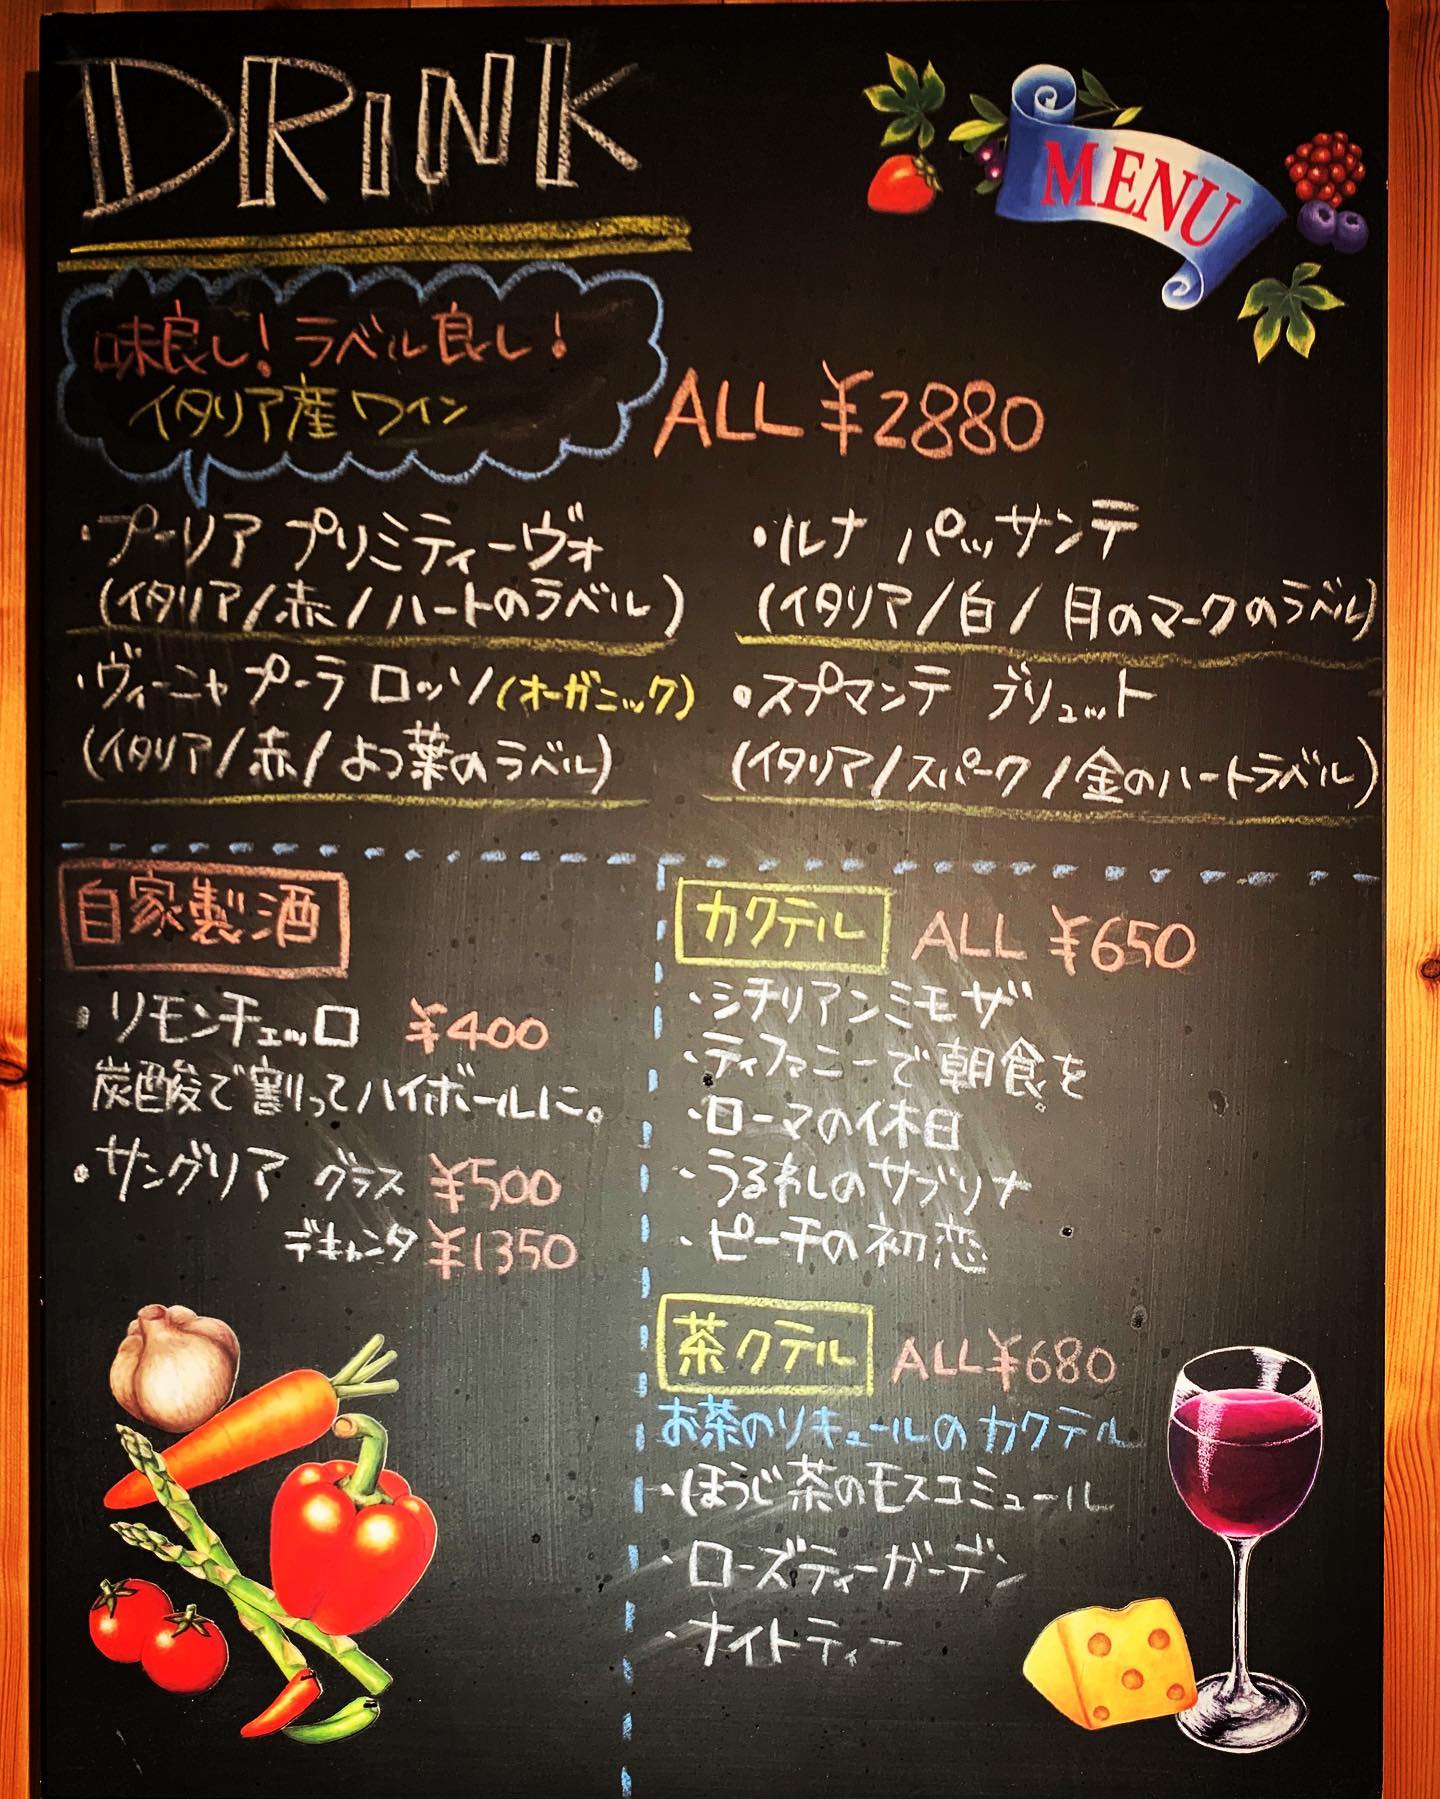 DRINK
MENU
味良し!ラベル良し!
イタリア産ワイン
ALL ¥2880
・プーリア プリミティーヴォ
(イタリア/赤/ハートのラベル)
・ルナ パッサンテ
(イタリア/白/月のマークのラベル)
・ヴィーニャプーラ ロッソ(オーガニック)
(イタリア/赤/よつ葉のラベル)
・スプマンテ ブリュット
(イタリア/スパーク/金のハートラベル)
自家製酒
・リモンチェッロ ¥400
炭酸で割ってハイボールに。
・サングリア グラス ¥500
デキャンタ ¥1350
カクテル ALL ¥650
・シチリアンミモザ
・ティファニーで朝食を
・ローマの休日
・うるわしのサブリナ
・ピーチの初恋
茶クテル ALL¥680
お茶のリキュールのカクテル
・ほうじ茶のモスコミュール
・ローズティーガーデン
・ナイトティー